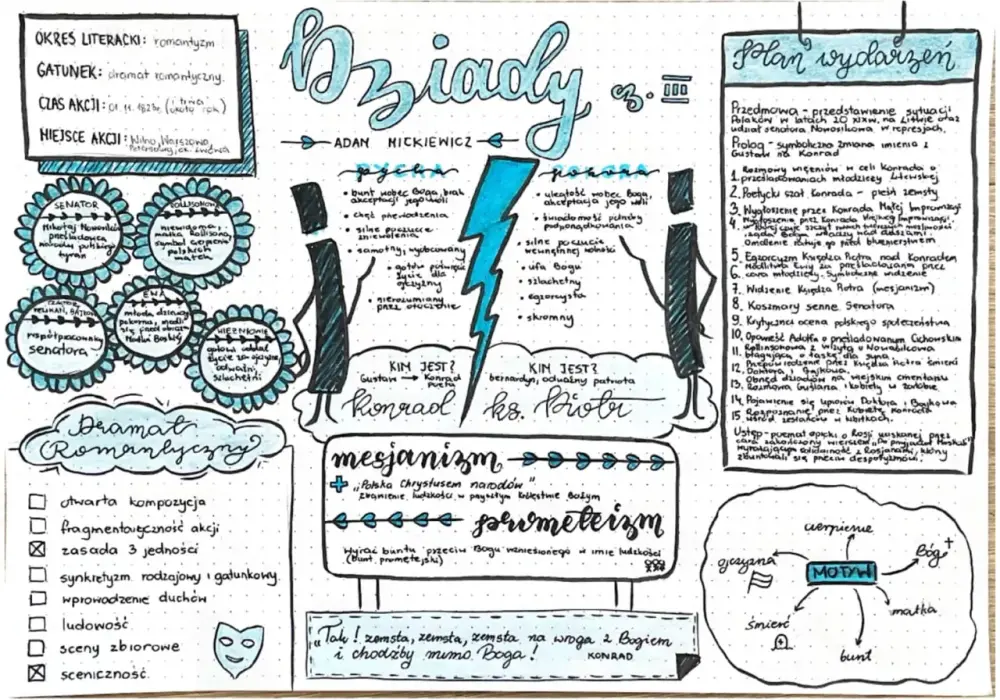 OKRES LITERACKI: romantyzm
GATUNEK: dramat romantyczny.
CZAS AKCJI: 01. 11. 1823r. (i trwa
około rok)
MIEJSCE AKCJI: Wilno, Warszawa,
Petersburg, ok. Lwowa
Dziady
cz. III
ADAM MICKIEWICZ
SENATOR
Mikołaj Nowosilcow
prześladowca
narodu polskiego
tyran
ROLLISONOWA
niewidoma,
matka Rollisona,
symbol cierpienia
polskich
matek
PELIKAN, BAJKOW
współpracownicy
senatora
EWA
młoda dziewczyna
pokorna, modli
się przed obrazem
Matki Boskiej
WIĘŹNIOWIE
gotowi oddać
życie za ojczyznę,
odważni,
szlachetni
PYCHA
• bunt wobec Boga, brak
akceptacji jego woli
• chęć przewodzenia
• silne poczucie
zniewolenia
• samotny, wyobcowany
• gotów poświęcić
życie dla
ojczyzny
• nierozumiany
przez otoczenie
POKORA
• uległość wobec Boga,
akceptacja jego woli
• świadomość potrzeby
podporządkowania
• silne poczucie
wewnętrznej wolności
• ufa Bogu
• szlachetny
• egzorcysta
• skromny
KIM JEST?
Gustaw → Konrad
poeta
Konrad
KIM JEST?
bernardyn, odważny patriota
ks. Piotr
Plan wydarzeń
Przedmowa - przedstawienie sytuacji
Polaków w latach 20 XIXw. na Litwie oraz
udział senatora Nowosilcowa w represjach.
Prolog - symboliczna zmiana imienia z
Gustaw na Konrad
1. Rozmowy więźniów w celi Konrada o
prześladowaniach młodzieży litewskiej
2. Poetycki szał Konrada - pieśń zemsty
3. Wygłoszenie przez Konrada Małej Improwizacji
4. Wygłoszenie przez Konrada Wielkiej Improwizacji,
żąda Boga władzy nad duszami.
Omdlenie ratuje go przed bluźnierstwem
5. Egzorcyzm Księdza Piotra nad Konradem
6. Modlitwa Ewy za prześladowaną przez
cara młodzież. Symboliczne widzenie
7. Widzenie Księdza Piotra (mesjanizm)
8. Koszmary senne Senatora
9. Krytyczna ocena polskiego społeczeństwa
10. Opowieść Adolfa o prześladowanym Cichowskim
11. Rollinsonowa z wizytą u Nowosilcowa
błagająca o łaskę dla syna.
12. Przepowiedzenie przez Księdza Piotra śmierci
Doktora i Bajkowa.
13. Obrzęd dziadów na wiejskim cmentarzu
Rozmowa Guślarza i kobiety w żałobie
14. Pojawienie się upiorów Doktora i Bajkowa
15. Rozpoznanie przez kobietę Konrada
wśród zesłańców w kibitkach.
Ustęp - poemat epicki o Rosji uciskanej przez
cara zakończony wierszem „Do przyjaciół Moskali"
wyrażającym solidarność z Rosjanami, którzy
zbuntowali się przeciw despotyzmowi.
Dramat
Romantyczny?
otwarta kompozycja
fragmentaryczność akcji
zasada 3 jedności
synkretyzm rodzajowy i gatunkowy
wprowadzenie duchów
ludowość
sceny zbiorowe
sceniczność
mesjanizm
„Polska Chrystusem narodów"
zbawienie ludzkości w przyszłym królestwie Bożym
prometeizm
Wyraz buntu przeciw Bogu wznieśionego w imię ludzkości
(bunt prometejski)
„Tak! zemsta, zemsta, zemsta na wroga z Bogiem
i choćby mimo Boga!
KONRAD
MOTYW
cierpienie
Bóg
matka
bunt
śmierć
ojczyzna